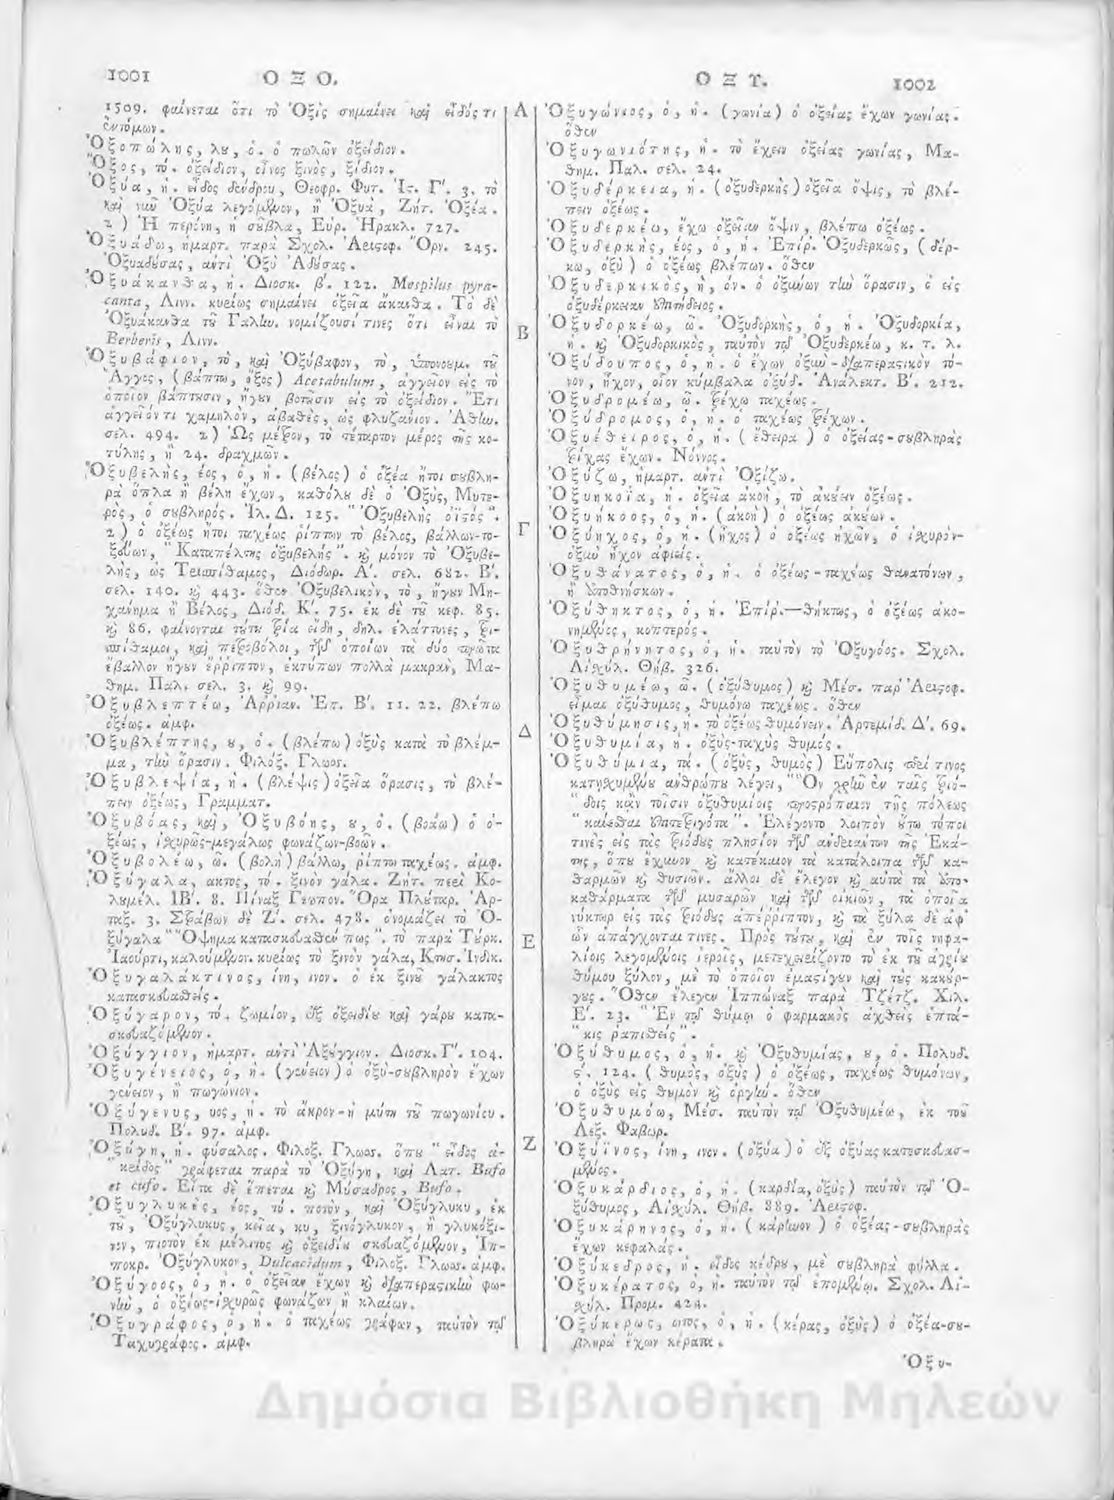 1001 Ο Ξ Ο.
1509. φαίνεται ὅτι τὸ Ὀξὶς σημαίνει καὶ εἶδός τι
ἐντόμων.
Ὀξοπώλης, λου, ὁ. ὁ πωλῶν ὀξείδιον.
Ὄξος, τό. ὀξείδιον, οἶνος ξινὸς, ξίδιον.
Ὀξύα, ἡ. εἶδος δένδρου, Θεοφρ. Φυτ. Ἱς. Γ'. 3. τὸ
καὶ νῦν Ὀξύα λεγόμενον, ἢ Ὀξυὰ, Ζήτ. Ὀξέα.
2) Ἡ περόνη, ἡ σοῦβλα, Εὐρ. Ἡρακλ. 727.
Ὀξυάδω, ἡμαρτ. παρὰ Σχολ. Ἀριστοφ. Ὄρν. 245.
Ὀξυαδούσας, ἀντὶ Ὀξὺ Ἀδούσας.
Ὀξυάκανθα, ἡ. Διοσκ. β'. 122. Mespilus pyra-
canta, Λινν. κυρίως σημαίνει ὀξεῖα ἄκανθα. Τὸ δὲ
Ὀξυάκανθα τοῦ Γαλην. νομίζουσί τινες ὅτι εἶναι τὸ
Berberis, Λινν.
Ὀξυβάφιον, τὸ, καὶ Ὀξύβαφον, τὸ, ὑποκορισμ. τοῦ
Ἄγγος, (βάπτω, ὄξος) Acetabulum, ἀγγεῖον εἰς τὸ
ὁποῖον βάπτουσιν, ἤγουν βουτοῦσιν εἰς τὸ ὀξείδιον. Ἔτι
ἀγγεῖόν τι χαμηλὸν, ἀβαθὲς, ὡς φλυζάνιον. Ἀθην.
σελ. 494. 2) Ὡς μέτρον, τὸ τέταρτον μέρος τῆς κο-
τύλης, ἢ 24. δραχμῶν.
Ὀξυβελὴς, έος, ὁ, ἡ. (βέλος) ὁ ὀξέα ἤτοι σουβλη-
ρὰ ὅπλα ἢ βέλη ἔχων, καθόλου δὲ ὁ Ὀξὺς, Μυτε-
ρὸς, ὁ σουβληρός. Ἰλ. Δ. 125. " Ὀξυβελὴς ὀϊστός ".
2) ὁ ὀξέως ἤτοι ταχέως ῥίπτων τὸ βέλος, βάλλων-το-
ξεύων, " Καταπέλτης ὀξυβελής ". καὶ μόνον τὸ Ὀξυβε-
λὴς, ὡς Τρισπίθαμος, Διόδωρ. Α'. σελ. 682. Β'.
σελ. 140. καὶ 443. ὅθεν Ὀξυβελικὸν, τὸ, ἤγουν Μη-
χάνημα ἢ Βέλος, Διόδ. Κ'. 75. ἐκ δὲ τοῦ κεφ. 85.
καὶ 86. φαίνονται τούτου τρία εἴδη, δηλ. ἐλάττονες, τρι-
σπίθαμοι, καὶ πετροβόλοι, τῶν ὁποίων τὰ δύο πρῶτα
ἔβαλλον ἤγουν ἔῤῥιπτον, ἐκτύπων πολλὰ μακρὰν, Μα-
θημ. Παλ. σελ. 3. καὶ 99.
Ὀξυβλεπτέω, Ἀῤῥιαν. Ἐπ. Β'. 11. 22. βλέπω
ὀξέως. ἀμφ.
Ὀξυβλέπτης, ου, ὁ. (βλέπω) ὀξὺς κατὰ τὸ βλέμ-
μα, τὴν ὅρασιν. Φιλόξ. Γλωσς.
Ὀξυβλεψία, ἡ. (βλέψις) ὀξεῖα ὅρασις, τὸ βλέ-
πειν ὀξέως, Γραμματ.
Ὀξυβόας, καὶ, Ὀξυβόης, ου, ὁ. (βοάω) ὁ ὀ-
ξέως, ἰσχυρῶς-μεγάλως φωνάζων-βοῶν.
Ὀξυβολέω, ῶ. (βολὴ) βάλλω, ῥίπτω ταχέως. ἀμφ.
Ὀξύγαλα, ακτος, τό. ξινὸν γάλα. Ζήτ. περὶ Κο-
λουμέλ. ΙΒ'. 8. Πίναξ Γεωπον. Ὅρα Πλούταρ. Ἀρ-
ταξ. 3. Στράβων δὲ Ζ'. σελ. 478. ὀνομάζει τὸ Ὀ-
ξύγαλα " Ὄψημα κατασκευασθέν πως ". τὸ παρὰ Τούρκ.
Ἰαούρτι, καλούμενον. κυρίως τὸ ξινὸν γάλα, Κτησ. Ἰνδικ.
Ὀξυγαλάκτινος, ίνη, ινον. ὁ ἐκ ξινοῦ γάλακτος
κατασκευασθείς.
Ὀξύγαρον, τό. ζωμίον, ἐξ ὀξειδίου καὶ γάρου κατα-
σκευαζόμενον.
Ὀξύγγιον, ἡμαρτ. ἀντὶ Ἀξούγγιον. Διοσκ. Γ'. 104.
Ὀξυγένειος, ὁ, ἡ. (γένειον) ὁ ὀξὺ-σουβληρὸν ἔχων
γένειον, ἢ πωγώνιον.
Ὀξύγενυς, υος, ἡ. τὸ ἄκρον-ἡ μύτη τοῦ πωγωνίου.
Πολυδ. Β'. 97. ἀμφ.
Ὀξύγη, ἡ. φύσαλος. Φιλόξ. Γλωσς. ὅπου " εἶδος ἀ-
" κρίδος " γράφεται παρὰ τὸ Ὀξύγη, καὶ Λατ. Bufo
et cufo. Εἶτα δὲ ἕπεται καὶ Μύσαδρος, Bufo.
Ὀξυγλυκὲς, έος, τό. ποτὸν, καὶ Ὀξύγλυκυ, ἐκ
τοῦ, Ὀξύγλυκυς, κεῖα, κυ, ξινόγλυκον, ἢ γλυκόξι-
νον, πιοτὸν ἐκ μέλιτος καὶ ὀξειδίου σκευαζόμενον, Ἱπ-
ποκρ. Ὀξύγλυκον, Dulcacidum, Φιλοξ. Γλωσς. ἀμφ.
Ὀξύγοος, ὁ, ἡ. ὁ ὀξεῖαν ἔχων καὶ διαπεραστικὴν φω-
νὴν, ὁ ὀξέως-ἰσχυρῶς φωνάζων ἢ κλαίων.
Ὀξυγράφος, ὁ, ἡ. ὁ ταχέως γράφων, ταὐτὸν τῷ
Ταχυγράφος. ἀμφ.
Α
Β
Γ
Δ
Ε
Ζ
Ο Ξ Υ. 1002
Ὀξυγώνιος, ὁ, ἡ. (γωνία) ὁ ὀξείας ἔχων γωνίας.
ὅθεν
Ὀξυγωνιότης, ἡ. τὸ ἔχειν ὀξείας γωνίας, Μα-
θημ. Παλ. σελ. 24.
Ὀξυδέρκεια, ἡ. (ὀξυδερκὴς) ὀξεῖα ὄψις, τὸ βλέ-
πειν ὀξέως.
Ὀξυδερκέω, ἔχω ὀξεῖαν ὄψιν, βλέπω ὀξέως.
Ὀξυδερκὴς, έος, ὁ, ἡ. Ἐπίρ. Ὀξυδερκῶς, (δέρ-
κω, ὀξὺ) ὁ ὀξέως βλέπων. ὅθεν
Ὀξυδερκικὸς, ἡ, όν. ὁ ὀξύνων τὴν ὅρασιν, ὁ εἰς
ὀξυδέρκειαν ἐπιτήδειος.
Ὀξυδορκέω, ῶ. Ὀξυδορκὴς, ὁ, ἡ. Ὀξυδορκία,
ἡ. καὶ Ὀξυδορκικὸς, ταὐτὸν τῷ Ὀξυδερκέω, κ. τ. λ.
Ὀξύδουπος, ὁ, ἡ. ὁ ἔχων ὀξὺν-διαπεραστικὸν τό-
νον, ἦχον, οἷον κύμβαλα ὀξύδ. Ἀνάλεκτ. Β'. 212.
Ὀξυδρομέω, ῶ. τρέχω ταχέως.
Ὀξύδρομος, ὁ, ἡ. ὁ ταχέως τρέχων.
Ὀξυέθειρος, ὁ, ἡ. (ἔθειρα) ὁ ὀξείας-σουβληρὰς
τρίχας ἔχων. Νόννος.
Ὀξύζω, ἡμαρτ. ἀντὶ Ὀξίζω.
Ὀξυηκοΐα, ἡ. ὀξεῖα ἀκοὴ, τὸ ἀκούειν ὀξέως.
Ὀξυήκοος, ὁ, ἡ. (ἀκοὴ) ὁ ὀξέως ἀκούων.
Ὀξύηχος, ὁ, ἡ. (ἦχος) ὁ ὀξέως ἠχῶν, ὁ ἰσχυρὸν-
ὀξὺν ἦχον ἀφιείς.
Ὀξυθάνατος, ὁ, ἡ. ὁ ὀξέως-ταχέως θανατόνων,
ἢ ἀποθνήσκων.
Ὀξύθηκτος, ὁ, ἡ. Ἐπίρ.—θήκτως, ὁ ὀξέως ἀκο-
νημένος, κοπτερός.
Ὀξυθρήνητος, ὁ, ἡ. ταὐτὸν τῷ Ὀξυγόος. Σχολ.
Αἰσχύλ. Θήβ. 326.
Ὀξυθυμέω, ῶ. (ὀξύθυμος) καὶ Μέσ. παρ' Ἀριστοφ.
εἶμαι ὀξύθυμος, θυμόνω ταχέως. ὅθεν
Ὀξυθύμησις, ἡ. τὸ ὀξέως θυμόνειν. Ἀρτεμίδ. Δ'. 69.
Ὀξυθυμία, ἡ. ὀξὺς-ταχὺς θυμός.
Ὀξυθύμια, τά. (ὀξὺς, θυμὸς) Εὔπολις περί τινος
κατηχουμένου ἀνθρώπου λέγει, " Ὃν χρῆν ἐν ταῖς τριό-
" δοις κἂν τοῖσιν ὀξυθυμίοις προςρόπαιον τῆς πόλεως
" καίεσθαι τετριγότα ". Ἐλέγοντο λοιπὸν οὕτω τόποι
τινὲς εἰς τὰς τριόδους πλησίον τῶν ἀνδριάντων τῆς Ἑκά-
της, ὅπου ἔχυνον καὶ κατέκαιον τὰ κατάλοιπα τῶν κα-
θαρμῶν καὶ θυσιῶν. ἄλλοι δὲ ἔλεγον καὶ αὐτὰ τὰ ἀπο-
καθάρματα τῶν μυσαρῶν καὶ τῶν οἰκιῶν, τὰ ὁποῖα
νύκτωρ εἰς τὰς τριόδους ἀπέῤῥιπτον, καὶ τὰ ξύλα δὲ ἀφ'
ὧν ἀπάγχονται τινες. Πρὸς τούτου, καὶ ἐν τοῖς νηφα-
λίοις λεγομένοις ἱεροῖς, μετεχειρίζοντο τὸ ἐκ τοῦ ἀγρίου
θύμου ξύλον, μὲ τὸ ὁποῖον ἐμάστιγουν καὶ τοὺς κακούρ-
γους. Ὅθεν ἔλεγεν Ἱππώναξ παρὰ Τζέτζ. Χιλ.
Ε'. 23. " Ἐν τῷ θύμῳ ὁ φαρμακὸς ἀχθεὶς ἑπτά-
" κις ῥαπισθείς ".
Ὀξύθυμος, ὁ, ἡ. καὶ Ὀξυθυμίας, ου, ὁ. Πολυδ.
ς'. 124. (θυμὸς, ὀξὺς) ὁ ὀξέως, ταχέως θυμόνων,
ὁ ὀξὺς εἰς θυμὸν καὶ ὀργήν. ὅθεν
Ὀξυθυμόω, Μέσ. ταὐτὸν τῷ Ὀξυθυμέω, ἐκ τοῦ
Λεξ. Φαβωρ.
Ὀξύϊνος, ίνη, ινον. (ὀξύα) ὁ ἐξ ὀξύας κατεσκευασ-
μένος.
Ὀξυκάρδιος, ὁ, ἡ. (καρδία, ὀξὺς) ταὐτὸν τῷ Ὀ-
ξύθυμος, Αἰσχύλ. Θήβ. 889. Ἀριστοφ.
Ὀξυκάρηνος, ὁ, ἡ. (κάρηνον) ὁ ὀξέας-σουβληρὰς
ἔχων κεφαλάς.
Ὀξύκεδρος, ἡ. εἶδος κέδρου, μὲ σουβληρὰ φύλλα.
Ὀξυκέρατος, ὁ, ἡ. ταὐτὸν τῷ ἑπομένῳ. Σχολ. Αἰ-
σχύλ. Προμ. 424.
Ὀξύκερως, ωτος, ὁ, ἡ. (κέρας, ὀξὺς) ὁ ὀξέα-σου-
βληρὰ ἔχων κέρατα.
Ὀξυ-
Δημόσια Βιβλιοθήκη Μηλεών